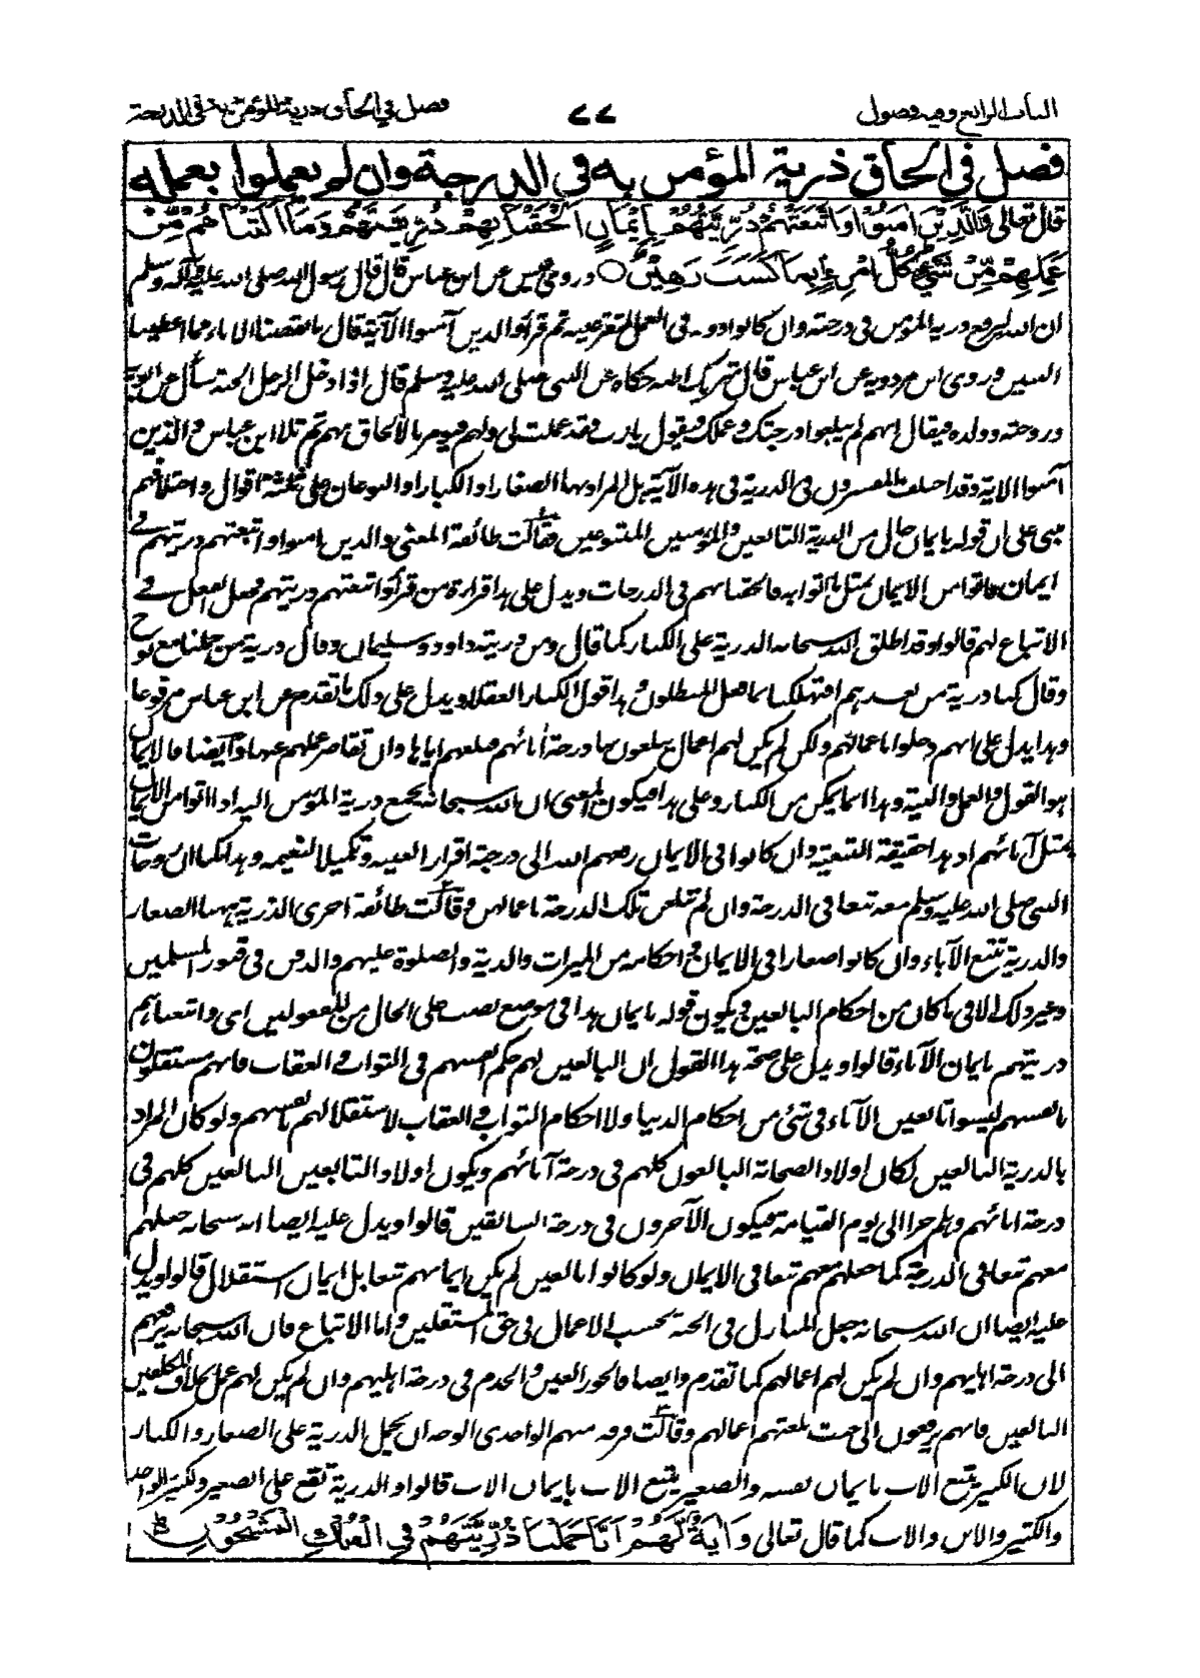 الباب الرابع وفيه فصول
٧٧
فصل في الحاق ذرية المؤمن به في الدرجة
فصل في الحاق ذرية المؤمن به في الدرجة وان لم يعملوا بعمله
قال تعالى وَالَّذِيْنَ اٰمَنُوْا وَاتَّبَعَتْهُمْ ذُرِّيَّتُهُمْ بِاِيْمَانٍ اَلْحَقْنَا بِهِمْ ذُرِّيَّتَهُمْ وَمَا اَلَتْنَاهُمْ مِّنْ
عَمَلِهِمْ مِّنْ شَيْءٍ كُلُّ امْرِءٍ بِمَا كَسَبَ رَهِيْنٌ ○ وروى قيس عن ابن عباس قال قال رسول الله صلى الله عليه وآله وسلم
ان الله ليرفع ذرية المؤمن في درجته وان كانوا دونه في العمل لتقر عينه ثم قرأ والذين آمنوا الآية قال ما نقصنا الاباء مما اعطينا
البنين وروى ابن مردويه عن ابن عباس قال شريك اظنه حكاه عن النبي صلى الله عليه وسلم قال اذا دخل الرجل الجنة سأل عن ابويه
وزوجته وولده فيقال انهم لم يبلغوا درجتك وعملك فيقول يارب قد عملت لى ولهم فيومر بالالحاق بهم ثم تلا ابن عباس والذين
آمنوا الاية وقد اختلف المفسرون في الذرية في هذه الآية هل المراد بها الصغار او الكبار او النوعان على ثلثة اقوال واختلافهم
مبنى على ان قوله بايمان حال من الذرية التابعين والمؤمنين المتبوعين فقالت طائفة المعنى والذين امنوا واتبعتهم ذريتهم في
ايمان فاتوا من الايمان بمثل ما اتوا به فالحقناهم في الدرجات ويدل على هذا قراءة من قرأ واتبعتهم ذريتهم فجعل الفعل في
الاتباع لهم قالوا وقد اطلق الله سبحانه الذرية على الكبار كما قال ومن ذريته داود وسليمان وقال ذرية من حملنا مع نوح
وقال كنا ذرية من بعدهم افتهلكنا بما فعل المبطلون وهذا قول الكبار العقلاء ويدل على ذلك ما تقدم عن ابن عباس مرفوعا
وهذا يدل على انهم دخلوا باعمالهم ولكن لم يكن لهم اعمال يبلغون بها درجة أبائهم فبلغهم اياها وان تقاصر عملهم عنها وايضا فالايمان
هو القول والعمل والنية وهذا انما يمكن من الكبار وعلى هذا فيكون المعنى ان الله سبحانه يجمع ذرية المؤمن اليه اذا اتوا من الايمان
بمثل آبائهم اذ هذا حقيقة التبعية وان كانوا في الايمان رفعهم الله الى درجة اقرار العينه وتكميلا لنعيمه وهذا كما ان زوجات
النبي صلى الله عليه وسلم معه تبعا في الدرجة وان لم تبلغن تلك الدرجة باعمالهن وقالت طائفة اخرى الذرية ههنا الصغار
والذرية تتبع الآباء وان كانوا صغارا في الايمان واحكامه من الميراث والدية والصلوة عليهم والدفن في قبور المسلمين
وغير ذلك الا في ما كان من احكام البالغين ويكون قوله بايمان هذا في موضع نصب على الحال من المفعولين اى واتبعناهم
ذريتهم بايمان الآباء قالوا ويدل على صحة هذا القول ان البالغين لهم حكم انفسهم في الثواب والعقاب فانهم مستقلون
بانفسهم ليسوا تابعين الآباء في شئ من احكام الدنيا ولا احكام الثواب والعقاب لاستقلالهم بانفسهم ولو كان المراد
بالذرية البالغين لكان اولاد الصحابة البالغون كلهم في درجة آبائهم ويكون اولاد التابعين البالغين كلهم في
درجة ابائهم وهلم جرا الى يوم القيامة فيكون الآخرون في درجة السابقين قالوا ويدل عليه ايضا انه سبحانه جعلهم
معهم تبعا في الدرجة كما جعلهم معهم تبعا في الايمان ولو كانوا بالغين لم يكن ايمانهم تبعا بل ايمان استقلال قالوا ويدل
عليه ايضا ان الله سبحانه جعل المنازل في الجنة بحسب الاعمال في حق المستقلين واما الاتباع فان الله سبحانه يرفعهم
الى درجة اهليهم وان لم يكن لهم اعمالهم كما تقدم وايضا فالحور العين والخدم في درجة اهليهم وان لم يكن لهم عمل بخلاف المكلفين
البالغين فانهم يرفعون الى حيث بلغتهم أعمالهم وقالت فرقه منهم الواحدى الوجه ان يحمل الذرية على الصغار والكبار
لان الكبير يتبع الاب بايمان نفسه والصغير يتبع الاب بايمان الاب قالوا والذرية تقع على الصغير والكبير والواحد
والكثير والابن والاب كما قال تعالى وَاٰيَةٌ لَّهُمْ اَنَّا حَمَلْنَا ذُرِّيَّتَهُمْ فِى الْفُلْكِ الْمَشْحُوْنِ ط